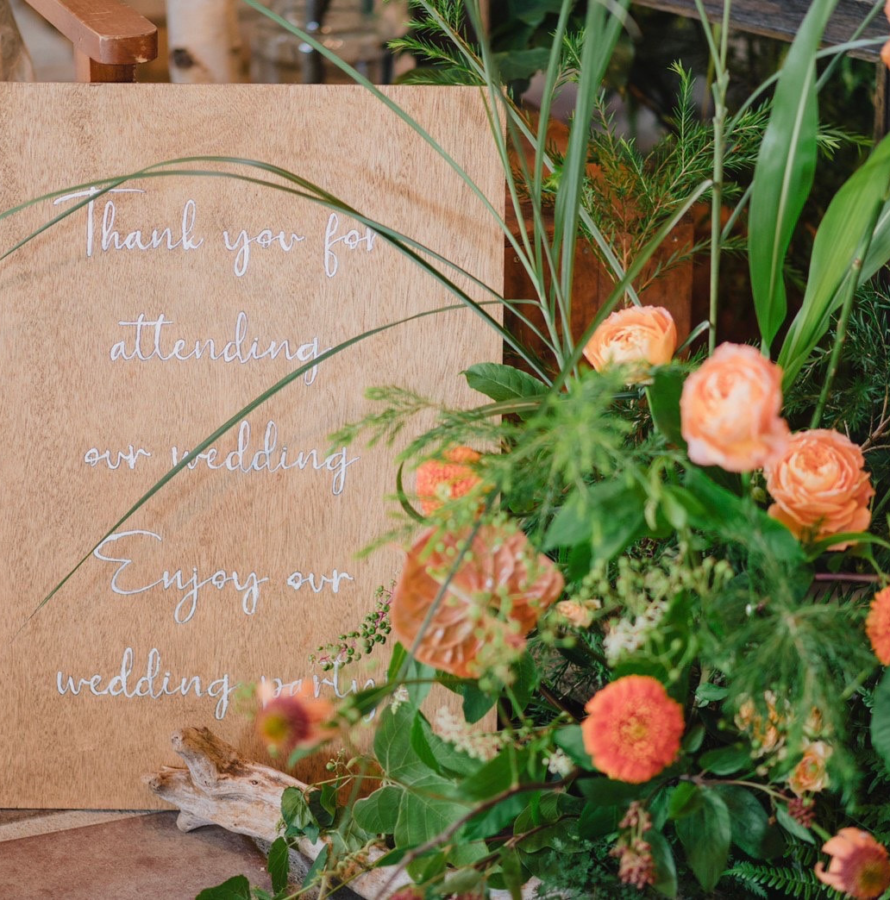 Thank you for
attending
our wedding
Enjoy our
wedding party